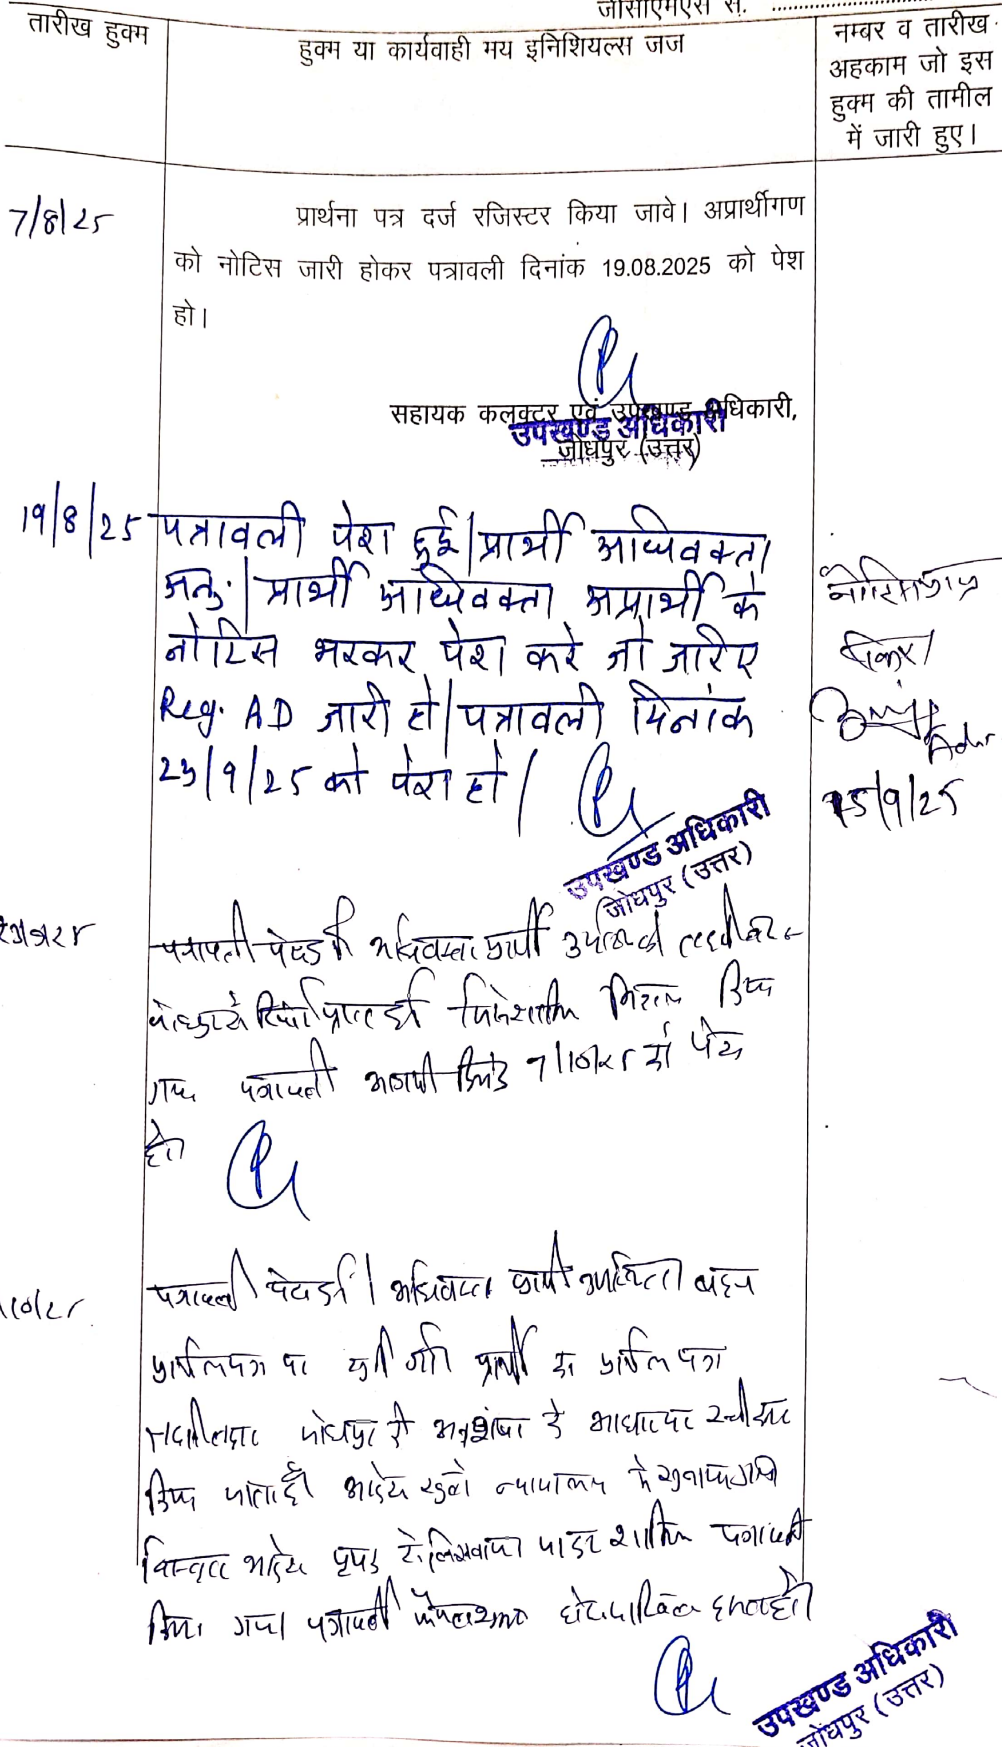 जीसीएमएस सं. ........................
तारीख हुक्म
हुक्म या कार्यवाही मय इनिशियल्स जज
नम्बर व तारीख
अहकाम जो इस
हुक्म की तामील
में जारी हुए।
7/8/25
प्रार्थना पत्र दर्ज रजिस्टर किया जावे। अप्रार्थीगण
को नोटिस जारी होकर पत्रावली दिनांक 19.08.2025 को पेश
हो।
सहायक कलक्टर एवं उपखण्ड अधिकारी,
उपखण्ड अधिकारी
जोधपुर (उत्तर)
19/8/25
पत्रावली पेश हुई। प्रार्थी अधिवक्ता
अनु.। प्रार्थी अधिवक्ता अप्रार्थी के
नोटिस भरकर पेश करे जो जरिए
Reg. AD जारी हो। पत्रावली दिनांक
23/9/25 को पेश हो।
उपखण्ड अधिकारी
जोधपुर (उत्तर)
नोटिस प्राप्त
किए।
Adv
15/9/25
पत्रावली पेश हुई अधिवक्ता प्रार्थी उप
रिपोर्ट प्राप्त हुई शामिल मिसल किया
गया पत्रावली आगामी दिनांक 7/10/25 को पेश
हो
10/25
पत्रावली पेश हुई। अधिवक्ता प्रार्थी उपस्थित। बहस
प्रार्थनापत्र पर सुनी गयी प्रार्थी का प्रार्थना पत्र
तहसीलदार जोधपुर की अनुशंषा के आधार पर स्वीकार
किया जाता है। आदेश खुले न्यायालय में सुनाया गया
विस्तृत आदेश पृथक से लिखवाया जाकर शामिल पत्रावली
किया गया। पत्रावली फैसलशुमार होकर दाखिल दफ्तर हो।
उपखण्ड अधिकारी
जोधपुर (उत्तर)